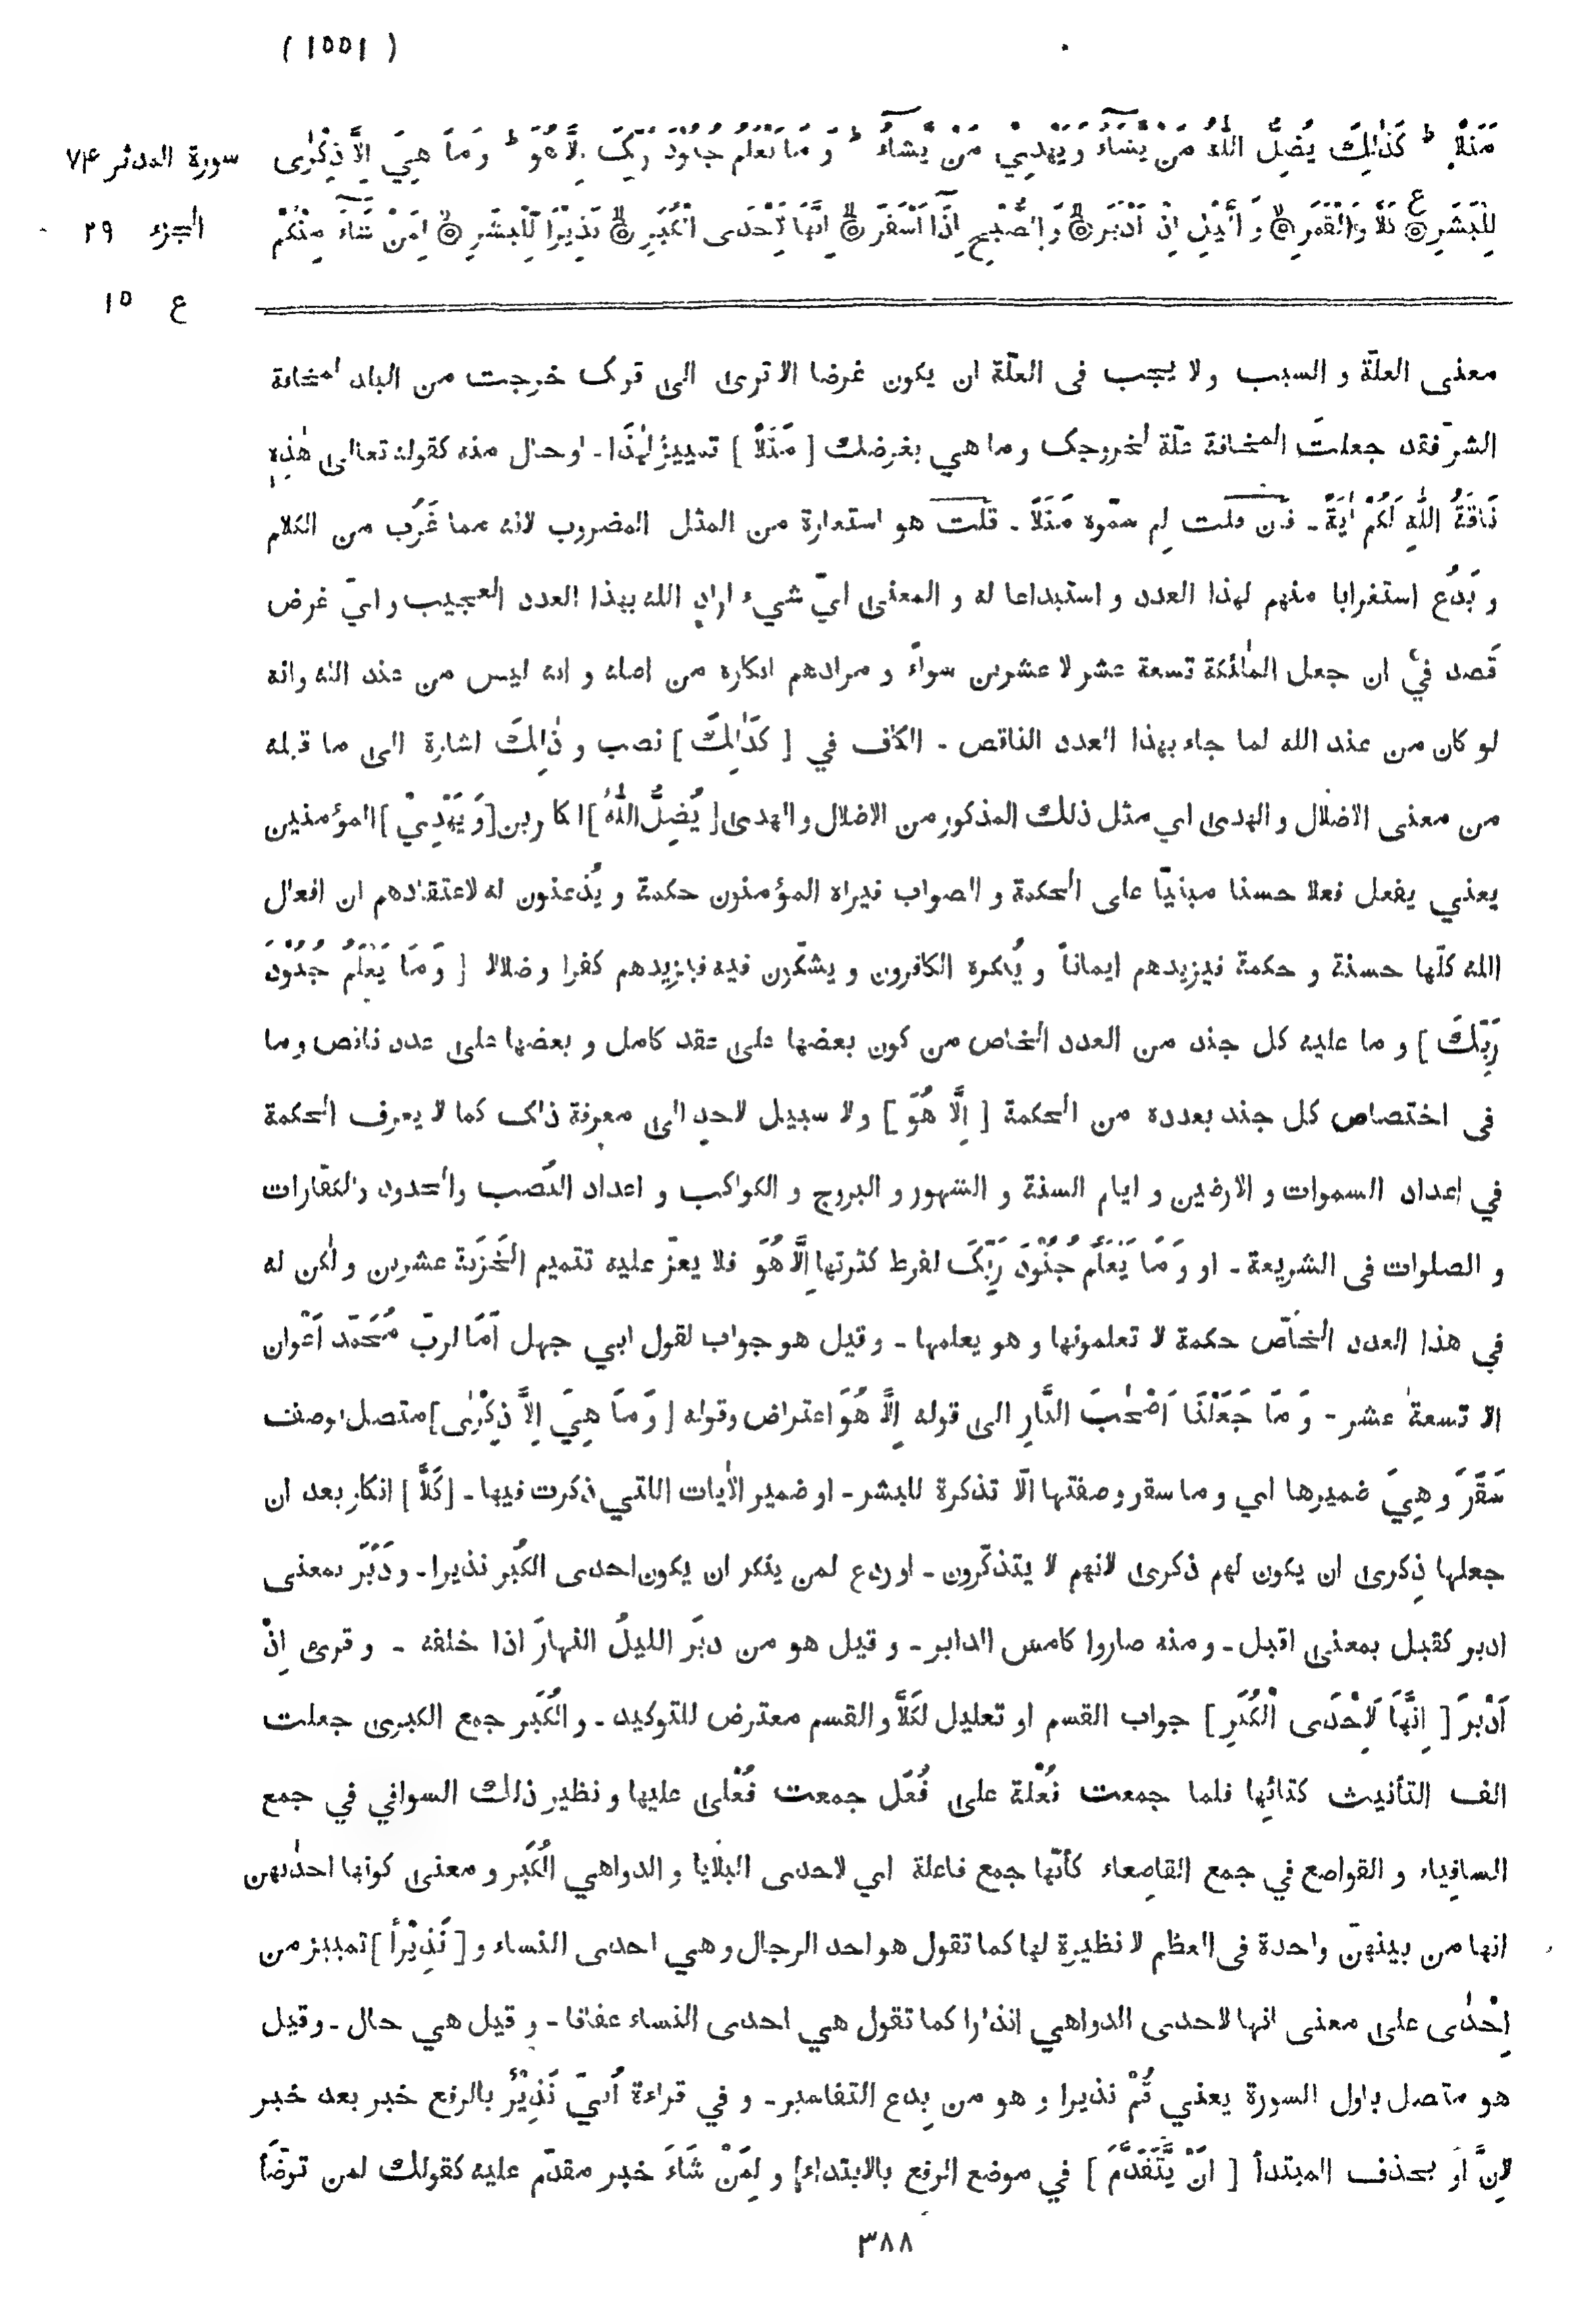 ( ١٥٥١ )
مَثَلًا ط كَذٰلِكَ يُضِلُّ اللّٰهُ مَنْ يَّشَآءُ وَيَهْدِيْ مَنْ يَّشَآءُ ط وَ مَا يَعْلَمُ جُنُوْدَ رَبِّكَ اِلَّا هُوَ ط وَ مَا هِيَ اِلَّا ذِكْرٰى
سورة المدثر ٧٤
لِلْبَشَرِ ع كَلَّا وَالْقَمَرِ وَ الَّيْلِ اِذْ اَدْبَرَ وَ الصُّبْحِ اِذَآ اَسْفَرَ اِنَّهَا لَاِحْدَى الْكُبَرِ نَذِيْرًا لِّلْبَشَرِ لِمَنْ شَآءَ مِنْكُمْ
الجزء ٢٩
ع ١٥
معنى العلّة و السبب ولا يجب فى العلّة ان يكون غرضا الا ترى الى قولك خرجت من البلد لمخافة
الشرّ فقد جعلتَ المخافة علّة لخروجك وما هي بغرضك [ مَثَلًا ] تمييز لِهٰذَا ـ او حال منه كقوله تعالى هٰذِهٖ
نَاقَةُ اللّٰهِ لَكُمْ اٰيَةً ـ فان قلت لِم سمّوه مَثَلًا ـ قلت هو استعارة من المثل المضروب لانه مما غَرُب من الكلام
و بَدُع استغرابا منهم لهذا العدد و استبداعا له و المعنى ايّ شيء اراد الله بهذا العدد العجيب و ايّ غرض
قَصد في ان جعل الملٰئكة تسعة عشر لا عشرين سواءً و مرادهم انكاره من اصله و انه ليس من عند الله وانه
لو كان من عند الله لما جاء بهذا العدد الناقص ـ الكاف في [ كَذٰلِكَ ] نصب و ذٰلِكَ اشارة الى ما قبله
من معنى الاضلال و الهدى اي مثل ذلك المذكور من الاضلال والهدى [ يُضِلُّ اللّٰهُ ] الكافرين [ وَ يَهْدِيْ ] المؤمنين
يعني يفعل فعلا حسنا مبنيّا على الحكمة و الصواب فيراه المؤمنون حكمة و يُذعنون له لاعتقادهم ان افعال
الله كلّها حسنة و حكمة فيزيدهم ايماناً و يُنكره الكافرون و يشكّون فيه فيزيدهم كفرا و ضلالا [ وَ مَا يَعْلَمُ جُنُوْدَ
رَبِّكَ ] و ما عليه كل جند من العدد الخاص من كون بعضها على عقد كامل و بعضها على عدد ناقص وما
فى اختصاص كل جند بعدده من الحكمة [ اِلَّا هُوَ ] ولا سبيل لاحدٍ الى معرفة ذلك كما لا يعرف الحكمة
في اعداد السموات و الارضين و ايام السنة و الشهور و البروج و الكواكب و اعداد النُصب والحدود والكفّارات
و الصلوات فى الشريعة ـ او وَ مَا يَعْلَمُ جُنُوْدَ رَبِّكَ لفرط كثرتها اِلَّا هُوَ فلا يعزّ عليه تتميم الخَزَنة عشرين ولٰكن له
في هذا العدد الخاصّ حكمة لا تعلمونها و هو يعلمها ـ وقيل هو جواب لقول ابي جهل اَمَا لربّ مُحَمّد اَعْوان
الا تسعة عشر ـ وَ مَا جَعَلْنَا اَصْحٰبَ النَّارِ الى قوله اِلَّا هُوَ اعتراض وقوله [ وَ مَا هِيَ اِلَّا ذِكْرٰى ] متصل بوصف
سَقَرَ وَ هِيَ ضميرها اي و ما سقر وصفتها الّا تذكرة للبشر ـ او ضمير الاٰيات اللتي ذكرت فيها ـ [ كَلَّا ] انكار بعد ان
جعلها ذِكرى ان يكون لهم ذكرى لانهم لا يتذكّرون ـ او ردع لمن ينكر ان يكون احدى الكُبر نذيرا ـ و دَبَرَ بمعنى
ادبر كقبل بمعنى اقبل ـ و منه صاروا كامس الدابر ـ و قيل هو من دبَر الليلُ النهارَ اذا خلفه ـ و قرئ اِذْ
اَدْبَرَ [ اِنَّهَا لَاِحْدَى الْكُبَرِ ] جواب القسم او تعليل لكَلَّا و القسم معترض للتوكيد ـ و الكُبَر جمع الكبرى جعلت
الف التأنيث كتائِها فلما جمعت فُعْلة على فُعَل جمعت فُعْلى عليها و نظير ذلك السوافي في جمع
السافياء و القواصع في جمع القاصعاء كأنّها جمع فاعلة اي لاحدى البلايا و الدواهي الكُبَر و معنى كونها احدٰىهن
انها من بينهنّ واحدة فى العظم لا نظيرة لها كما تقول هو احد الرجال و هي احدى النساء و [ نَذِيْرًا ] تمييز من
اِحْدٰى على معنى انها لاحدى الدواهي انذارا كما تقول هي احدى النساء عفافا ـ و قيل هي حال ـ وقيل
هو متصل باول السورة يعني قُمْ نذيرا و هو من بِدع التفاسير ـ و في قراءة اُبيّ نَذِيْرٌ بالرفع خبر بعد خبر
لِاِنَّ او بحذف المبتدأ [ اَنْ يَّتَقَدَّمَ ] في موضع الرفع بالابتداء و لِمَنْ شَاءَ خبر مقدّم عليه كقولك لمن توضّأ
٣٨٨